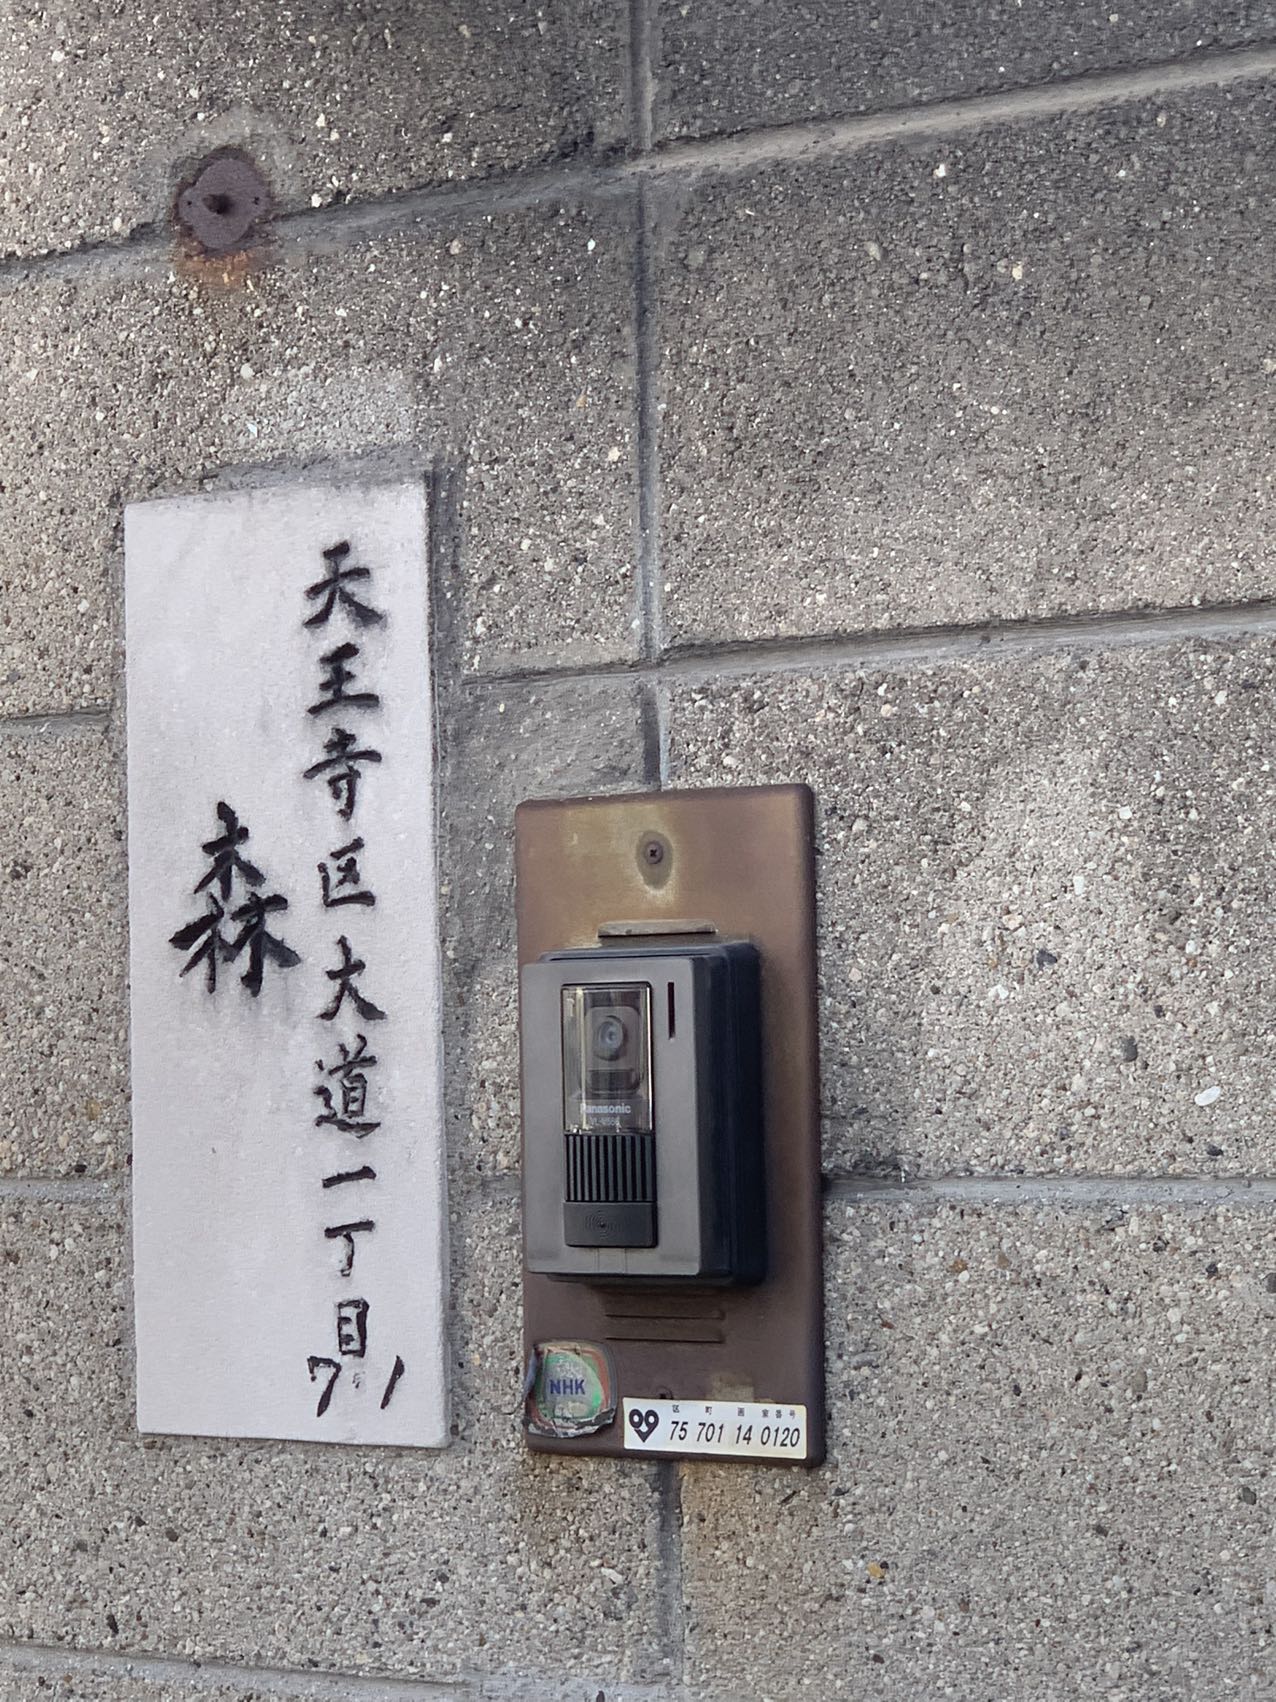 天王寺区大道一丁目
7-1
森
Panasonic
NHK
区 町 画 家番号
75 701 14 0120